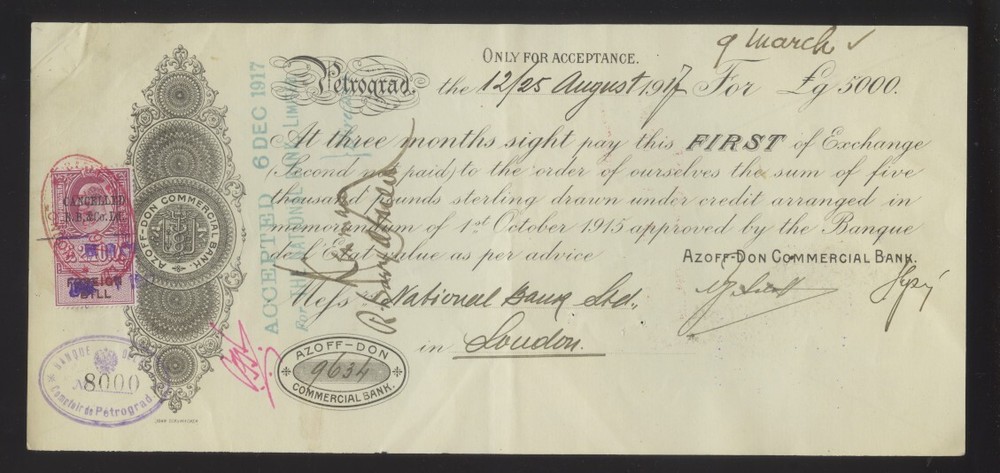 9 March
ONLY FOR ACCEPTANCE.
Petrograd. the 12/25 August 1917 For £g 5000.
At three months sight pay this FIRST of Exchange
(Second not paid) to the order of ourselves the sum of five
thousand pounds sterling drawn under credit arranged in
memorandum of 1st October 1915 approved by the Banque
de l'Etat value as per advice
AZOFF-DON COMMERCIAL BANK.
Messrs National Bank Ltd.,
in London.
ACCEPTED 6 DEC 1917
For THE NATIONAL BANK LIMITED
AZOFF-DON COMMERCIAL BANK.
CANCELLED
FOREIGN
BILL
BANQUE DE
8000
Comptoir de Pétrograd.
AZOFF-DON
9634
COMMERCIAL BANK.